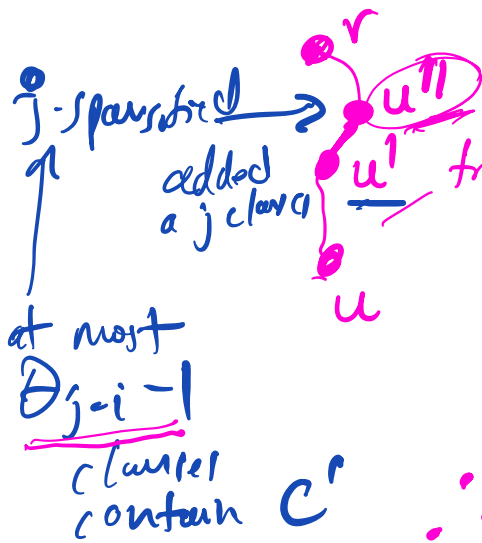 r
j-sparsified → u''
added u'
a j clause
u
at most
θ_{j-i} - 1
clauses
contain C'